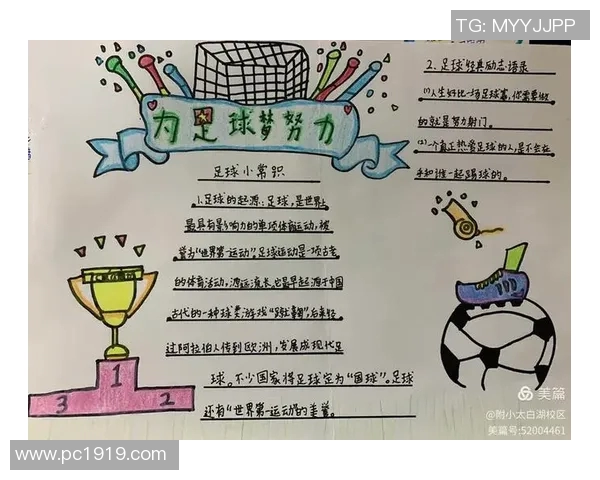 TG: MYYJJPP
为足球梦努力
足球小常识
1.足球的起源:足球,是世界上
最具有影响力的单项体育运动,被
誉为"世界第一运动",足球运动是一项古老
的体育活动,源远流长。它最早起源于中国
古代的一种球类游戏"蹴鞠",后来经
过阿拉伯人传到欧洲,发展成现代足
球。不少国家将足球定为"国球"。足球
还有"世界第一运动"的美誉。
2.足球经典励志语录
(1)人生好比一场足球赛,你需要做
的就是努力射门。
(2)一个真正热爱足球的人,是不会在
乎和谁一起踢球的。
3 1 2
美篇
@附小太白湖校区
美篇号:52004461
www.pc1919.com